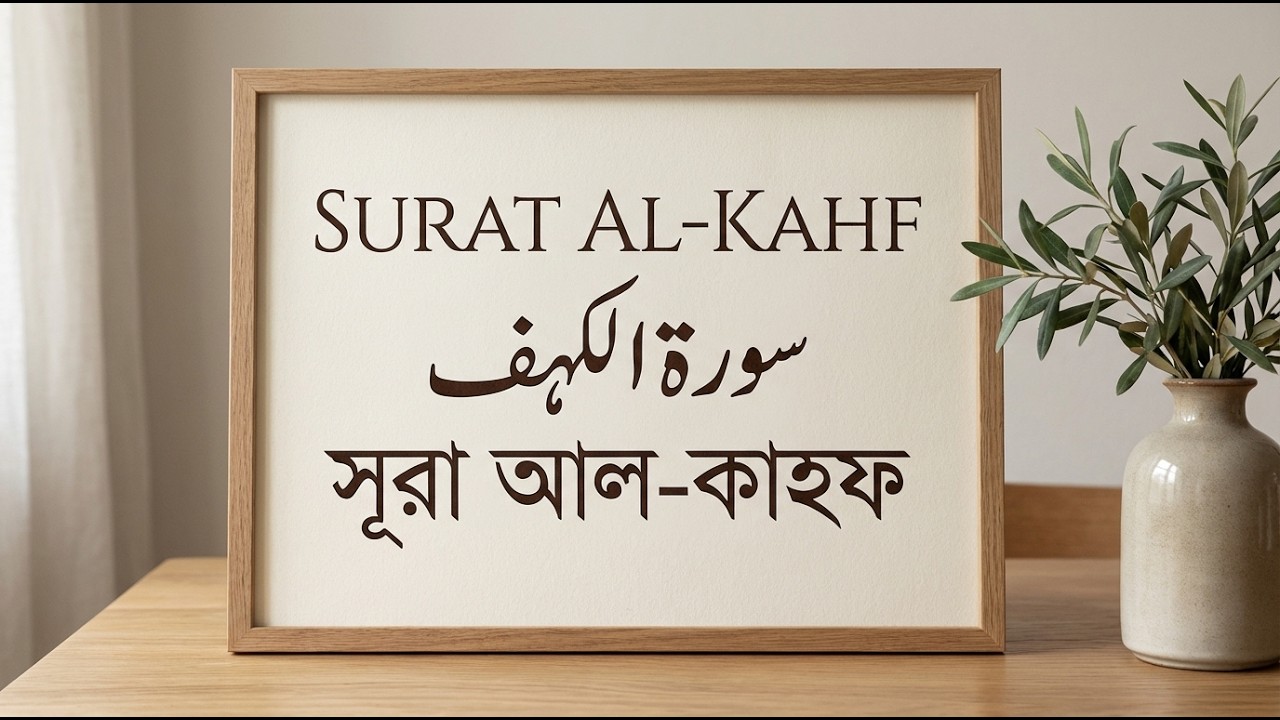 SURAT AL-KAHF
سورة الكهف
সূরা আল-কাহফ